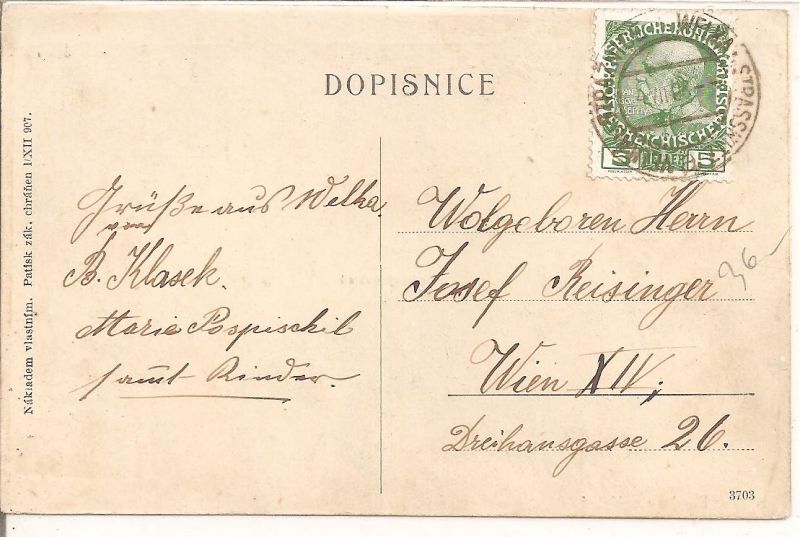 DOPISNICE
Nákladem vlastním. Patisk zák. chráněn 1/XII 907.
Grüße aus Welka
von
B. Klasek.
Marie Pospischil
samt Kinder.
Wolgeboren Herrn
Josef Reisinger
Wien XIV;
Dreihausgasse 26.
36
5 HELLER 5
3703